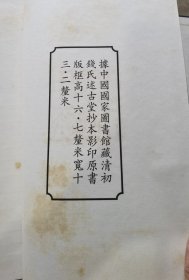 據中國國家圖書館藏清初
錢氏述古堂抄本影印原書
版框高十六·七釐米寬十
三·二釐米